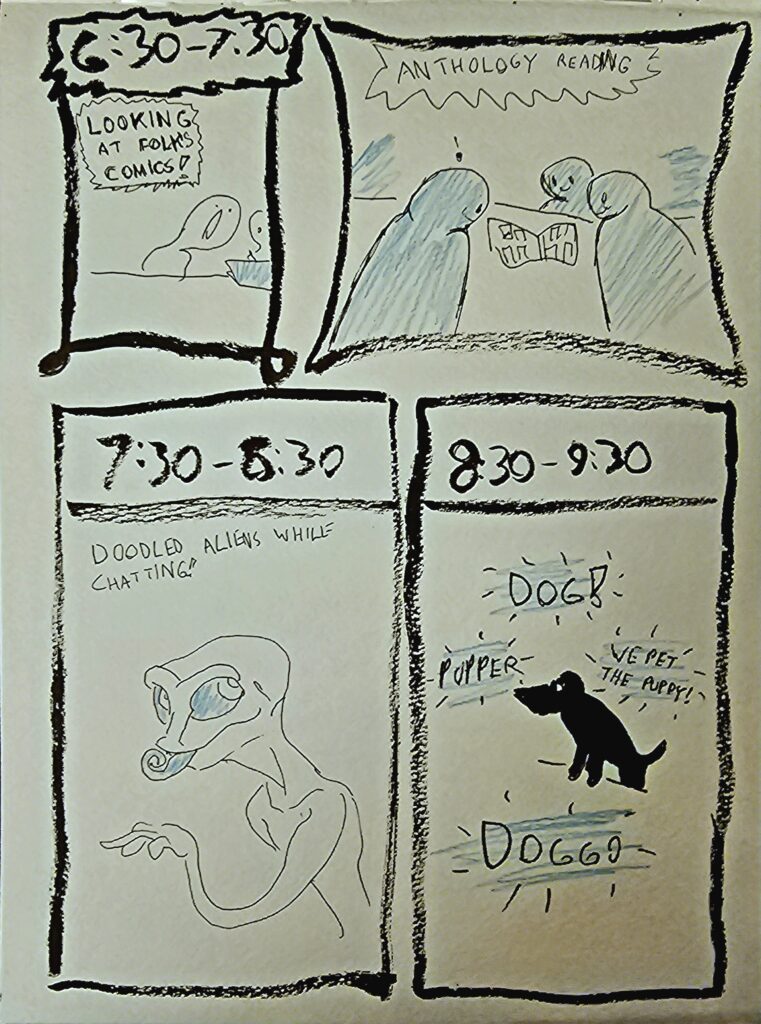 6:30-7:30
LOOKING
AT FOLKS
COMICS!
ANTHOLOGY READING
!
7:30-8:30
DOODLED ALIENS WHILE
CHATTING!!
8:30-9:30
DOG!
PUPPER
WE PET
THE PUPPY!
DOGGO